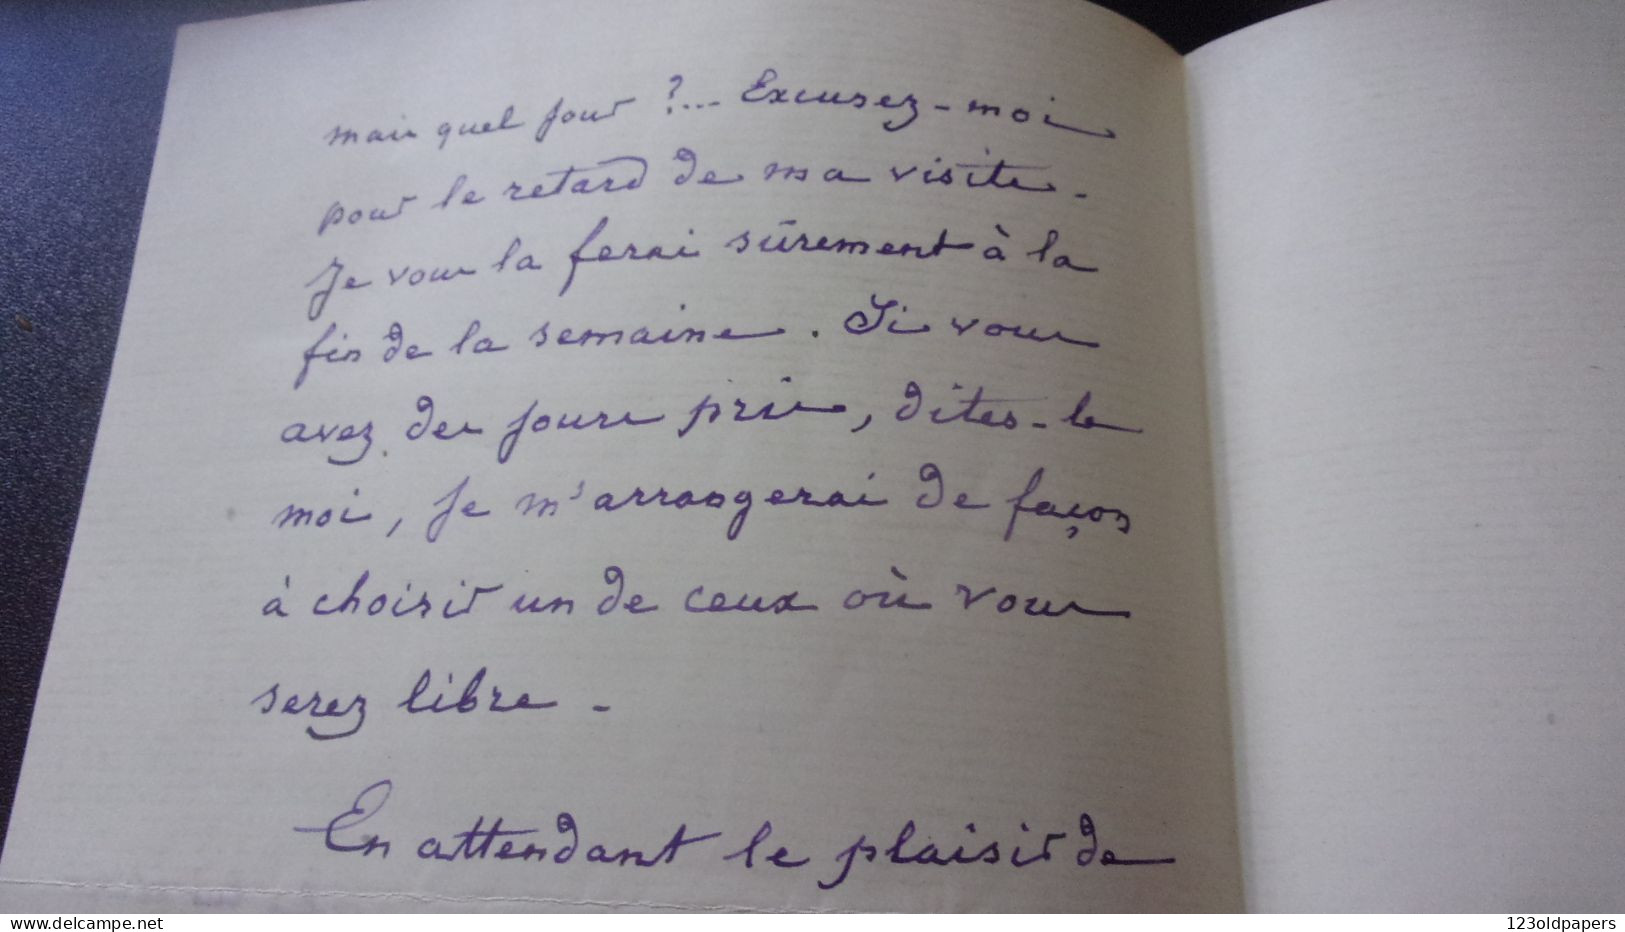 mais quel jour ?... Excusez-moi
pour le retard de ma visite -
Je vous la ferai sûrement à la
fin de la semaine. Si vous
avez des jours pris, dites-le
moi, je m'arrangerai de façon
à choisir un de ceux où vous
serez libre -
En attendant le plaisir de
delcampe.net
123oldpapers